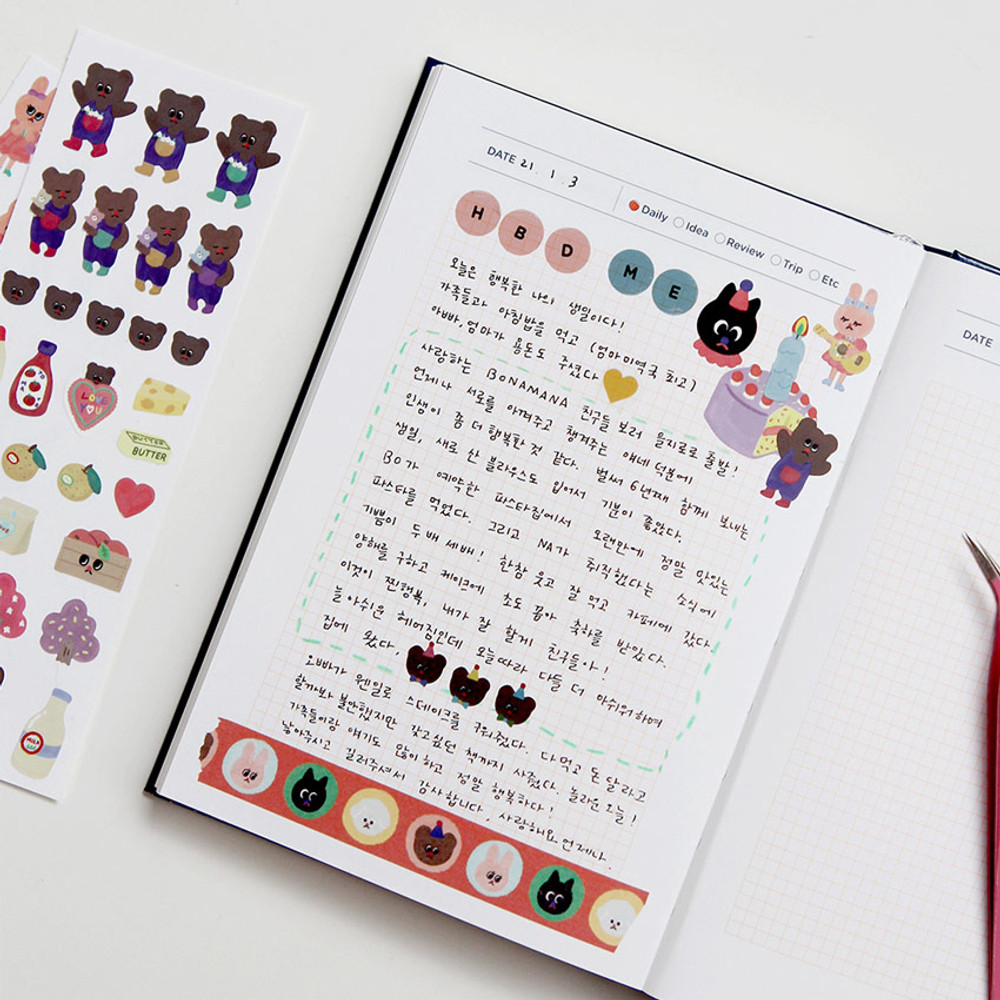 DATE 21. 1. 3
Daily Idea Review Trip Etc
HBD ME
오늘은 행복한 나의 생일이다!
가족들과 아침밥을 먹고 (엄마 미역국 최고)
아빠, 엄마가 용돈도 주셨다
사랑하는 BONAMANA 친구들 보러 을지로로 출발!
언제나 서로를 아껴주고 챙겨주는 얘네 덕분에
인생이 좀 더 행복한 것 같다. 벌써 6년째 함께 보내는
생일, 새로 산 블라우스도 입어서 기분이 좋았다.
BO가 예약한 파스타집에서 오랜만에 정말 맛있는
파스타를 먹었다. 그리고 NA가 취직했다는 소식에
기쁨이 두 배 세 배! 한참 웃고 잘 먹고 카페에 갔다.
양해를 구하고 케이크에 초도 꼽아 축하를 받았다.
이것이 찐행복, 내가 잘 할게 친구들아!
늘 아쉬운 헤어짐인데 오늘따라 다들 더 아쉬워하며
집에 왔다.
오빠가 웬일로 스테이크를 구워줬다. 다 먹고 돈 달라고
할까봐 불안했지만 갖고싶던 책까지 사줬다. 놀라운 오늘!
가족들이랑 얘기도 많이 하고 정말 행복하다!
낳아주시고 길러주셔서 감사합니다, 사랑해요 언제나
DATE
LOVE YOU
BUTTER
BUTTER
MILK